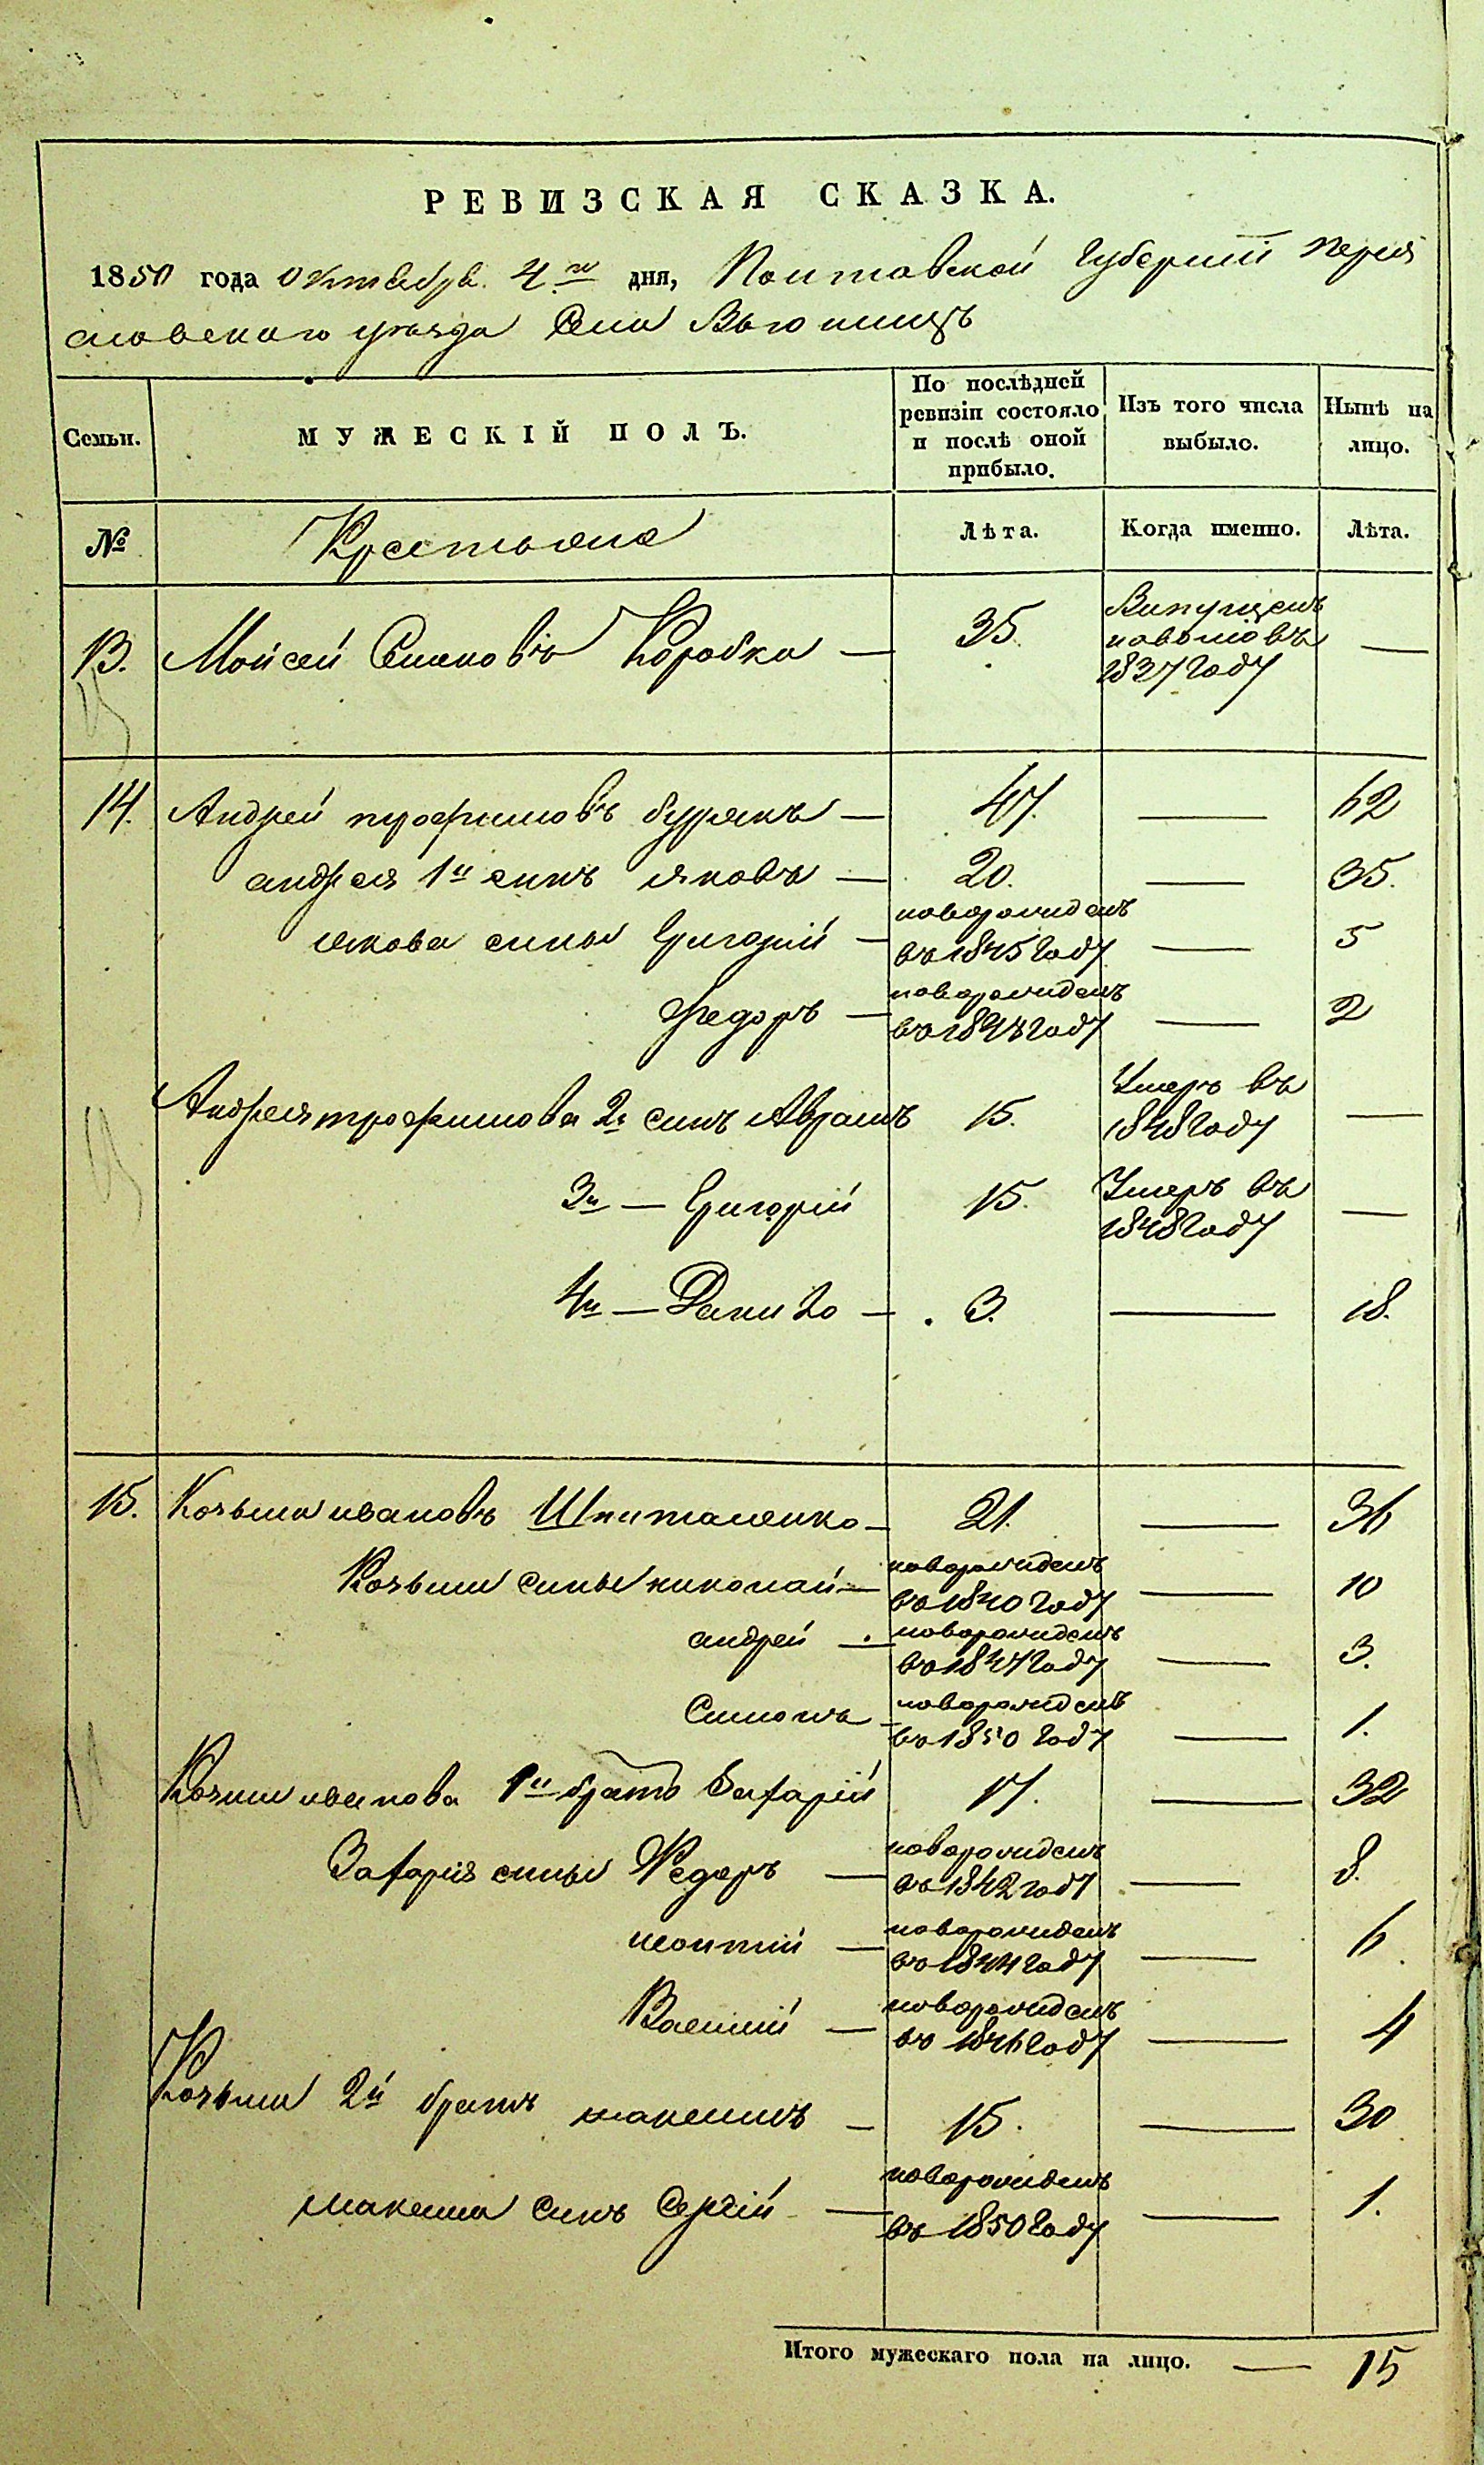 РЕВИЗСКАЯ СКАЗКА.
1850 года Октября 4го дня, Полтавской Губернии Перея
словскаго уезда Села Вьюнищъ
Семьи.
МУЖЕСКІЙ ПОЛЪ.
По послѣдней ревизіи состояло и послѣ оной прибыло.
Изъ того числа выбыло.
Нынѣ на лицо.
№ Крестьяне Лѣта. Когда именно. Лѣта.
13. Мойсей Семеновъ Коробка — 35. въ 1837 году —
14. Андрей трофимовъ бурякъ — 47. — 62
андрея 1й синъ яковъ — 20. — 35.
якова сины Григорій — новорожденъ въ 1845 году — 5
Федоръ — новорожденъ въ 1848 году — 2
Андрея трофимова 2й синъ Аврамъ 15. Умеръ въ 1848 году —
3й — Григорій 15. Умеръ въ 1848 году —
4й — Данило — 3. — 18.
15. Козьма ивановъ Шпиталенко — 21. — 36
Козьми сины николай — новорожденъ въ 1840 году — 10
андрей — новорожденъ въ 1847 году — 3.
Симонъ — новорожденъ въ 1850 году — 1.
Козми иванова 1й братъ Захарій 17. — 32
Захарія сины Федоръ — новорожденъ въ 1842 году — 8.
леонтий — новорожденъ въ 1844 году — 6
Василий — новорожденъ въ 1846 году — 4
Козьми 2й братъ максимъ — 15. — 30
максима синъ Сергій — новорожденъ въ 1850 году — 1.
Итого мужескаго пола на лицо. — 15